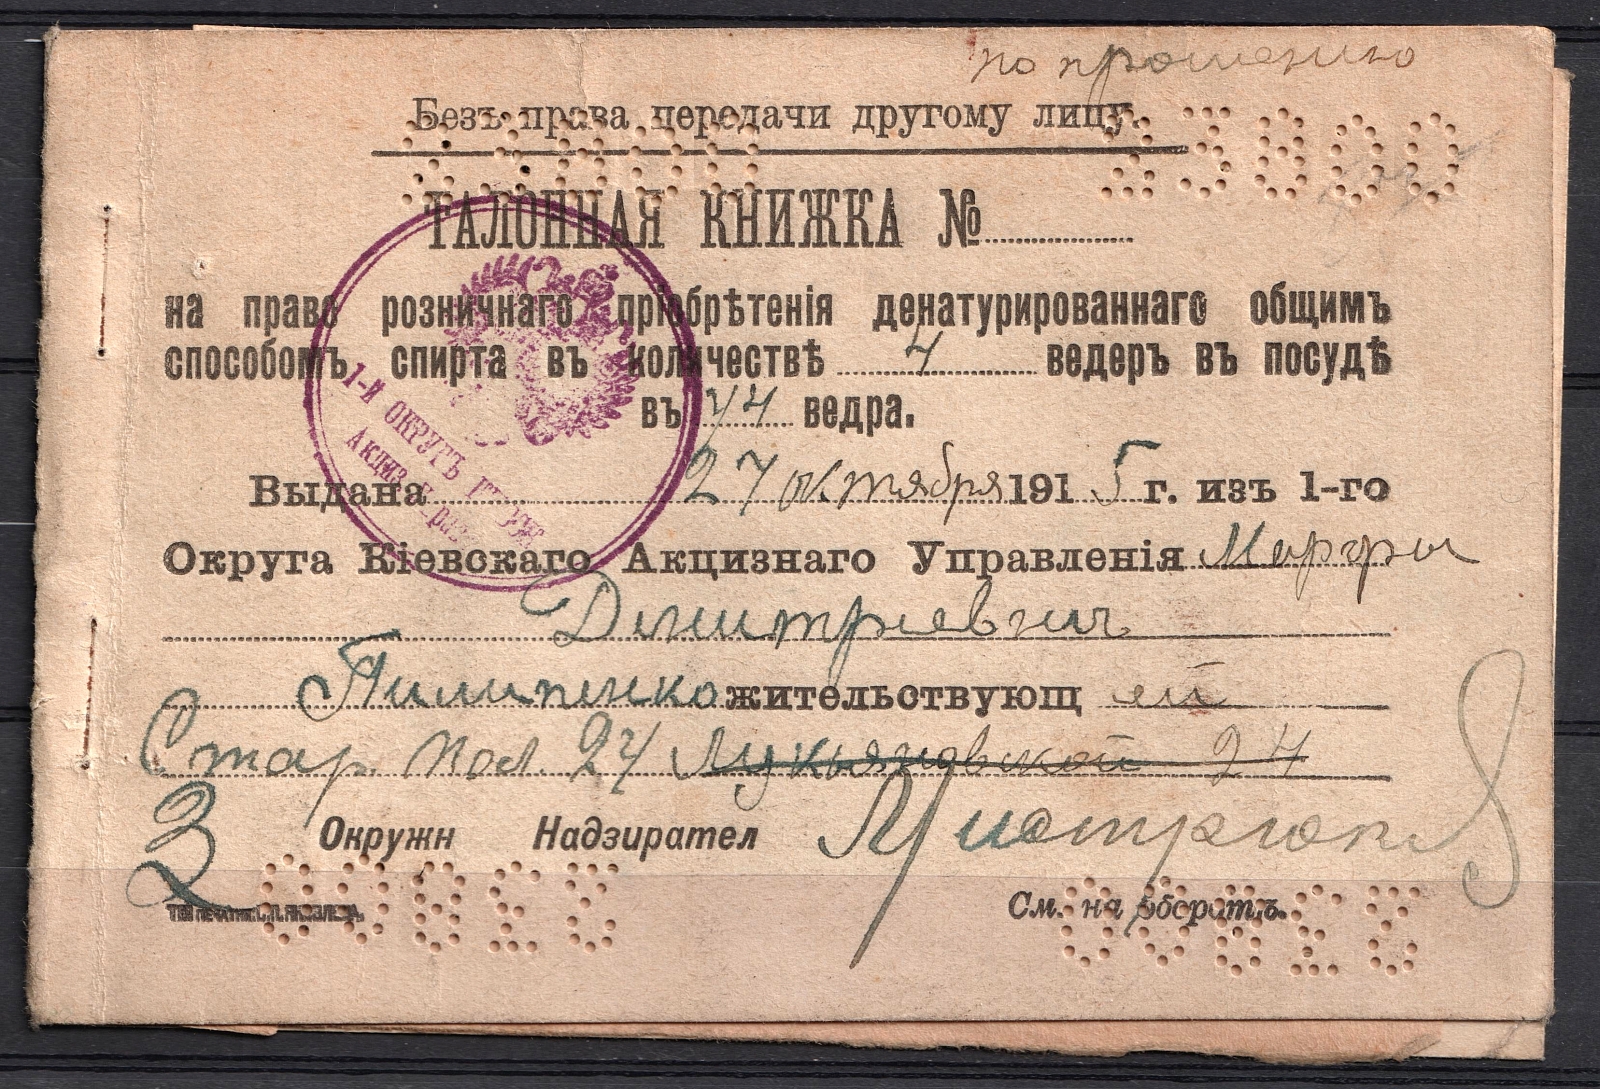 по прошению
Безъ права передачи другому лицу.
23800 23800
ТАЛОННАЯ КНИЖКА №
на право розничнаго пріобрѣтенія денатурированнаго общимъ
способомъ спирта въ количествѣ 4 ведеръ въ посудѣ
въ 1/4 ведра.
1-й ОКРУГЪ
Выдана 27 октября 1915 г. изъ 1-го
Округа Кіевскаго Акцизнаго Управленія Марфы
Димитріевны
Пилипенко жительствующ ей
Стар. Пол. 24 Лукьяновской 24
3 Окружн Надзирател
См. на оборотѣ.
23800 23800